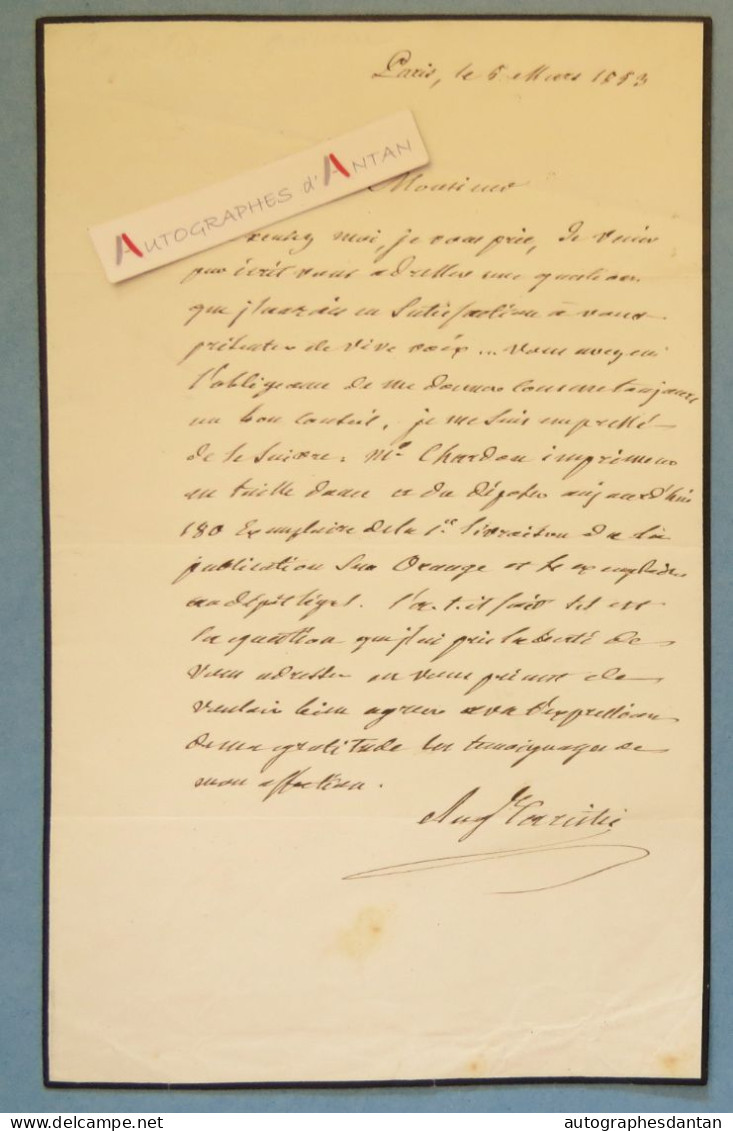 Paris, le 5 Mars 1853
AUTOGRAPHES d'ANTAN
Monsieur
moi, je vous prie, de venir
par écrit vous adresser une question
que j'aurais eu satisfaction à vous
présenter de vive voix... Vous avez eu
l'obligeance de me donner comme toujours
un bon conseil, je me suis empressé
de le suivre. Mr Chardon imprimeur
en taille douce a du déposer aujourd'hui
180 Exemplaire de la 1re livraison de la
publication sur Orange et le exemplaire
au dépôt légal. l'a-t-il fait tel est
la question que j'ai pris la liberté de
vous adresser en vous priant de
vouloir bien agréer avec l'expression
de ma gratitude les temoignages de
mon affection.
Aug te Caristie
autographesdantan